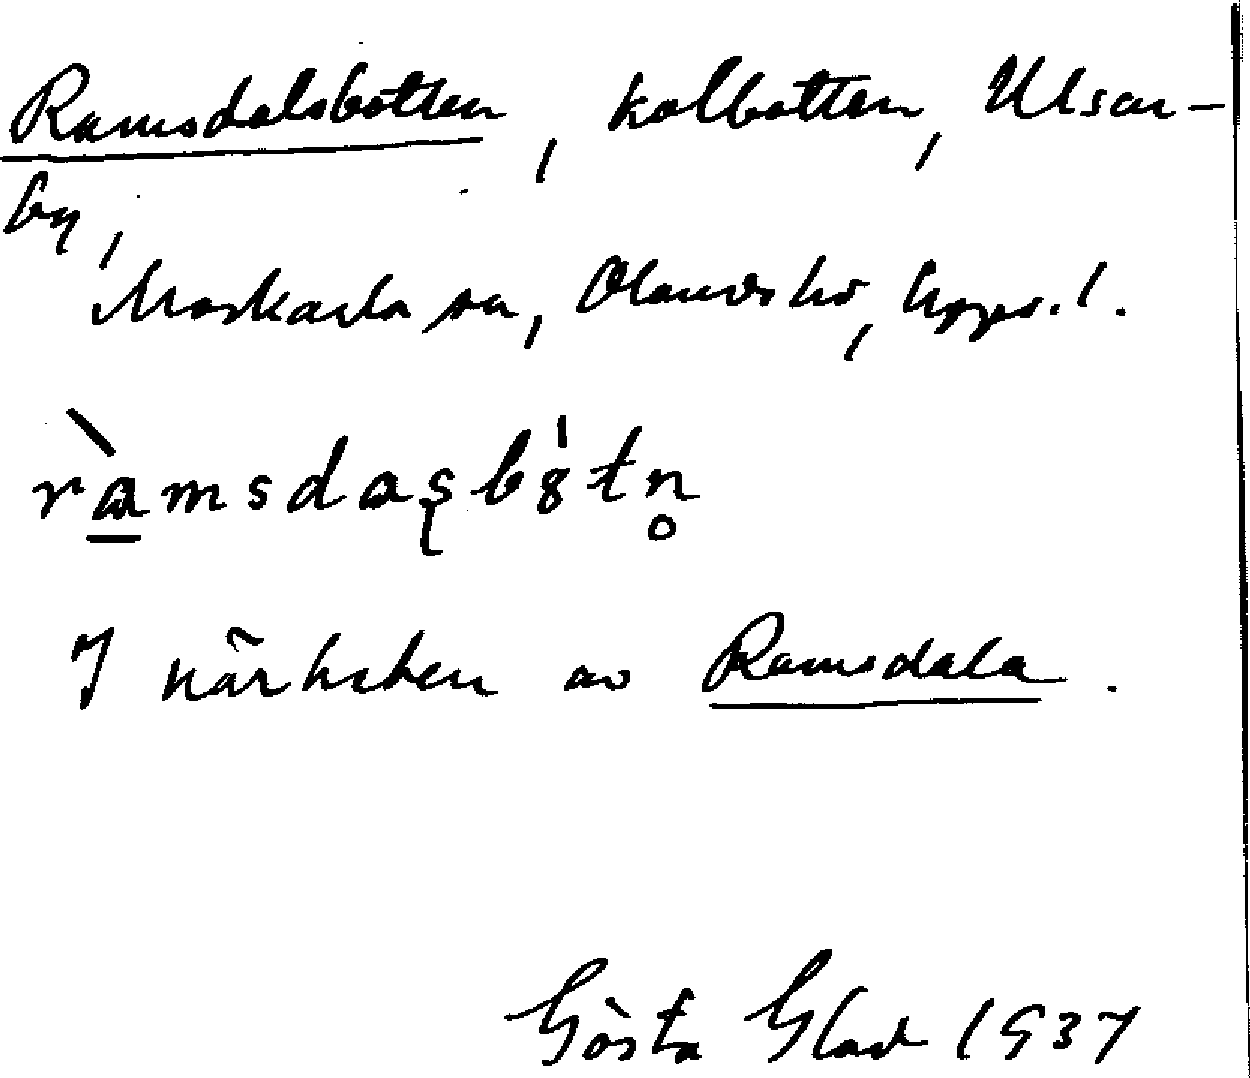 Ramsdalsbotten, kolbotten, Ulsar-
by,
Morkarla sn, Olands hd, Upps. l.
ràmsdaʂbötn̥
I närheten av Ramsdala.
Gösta Glad 1937